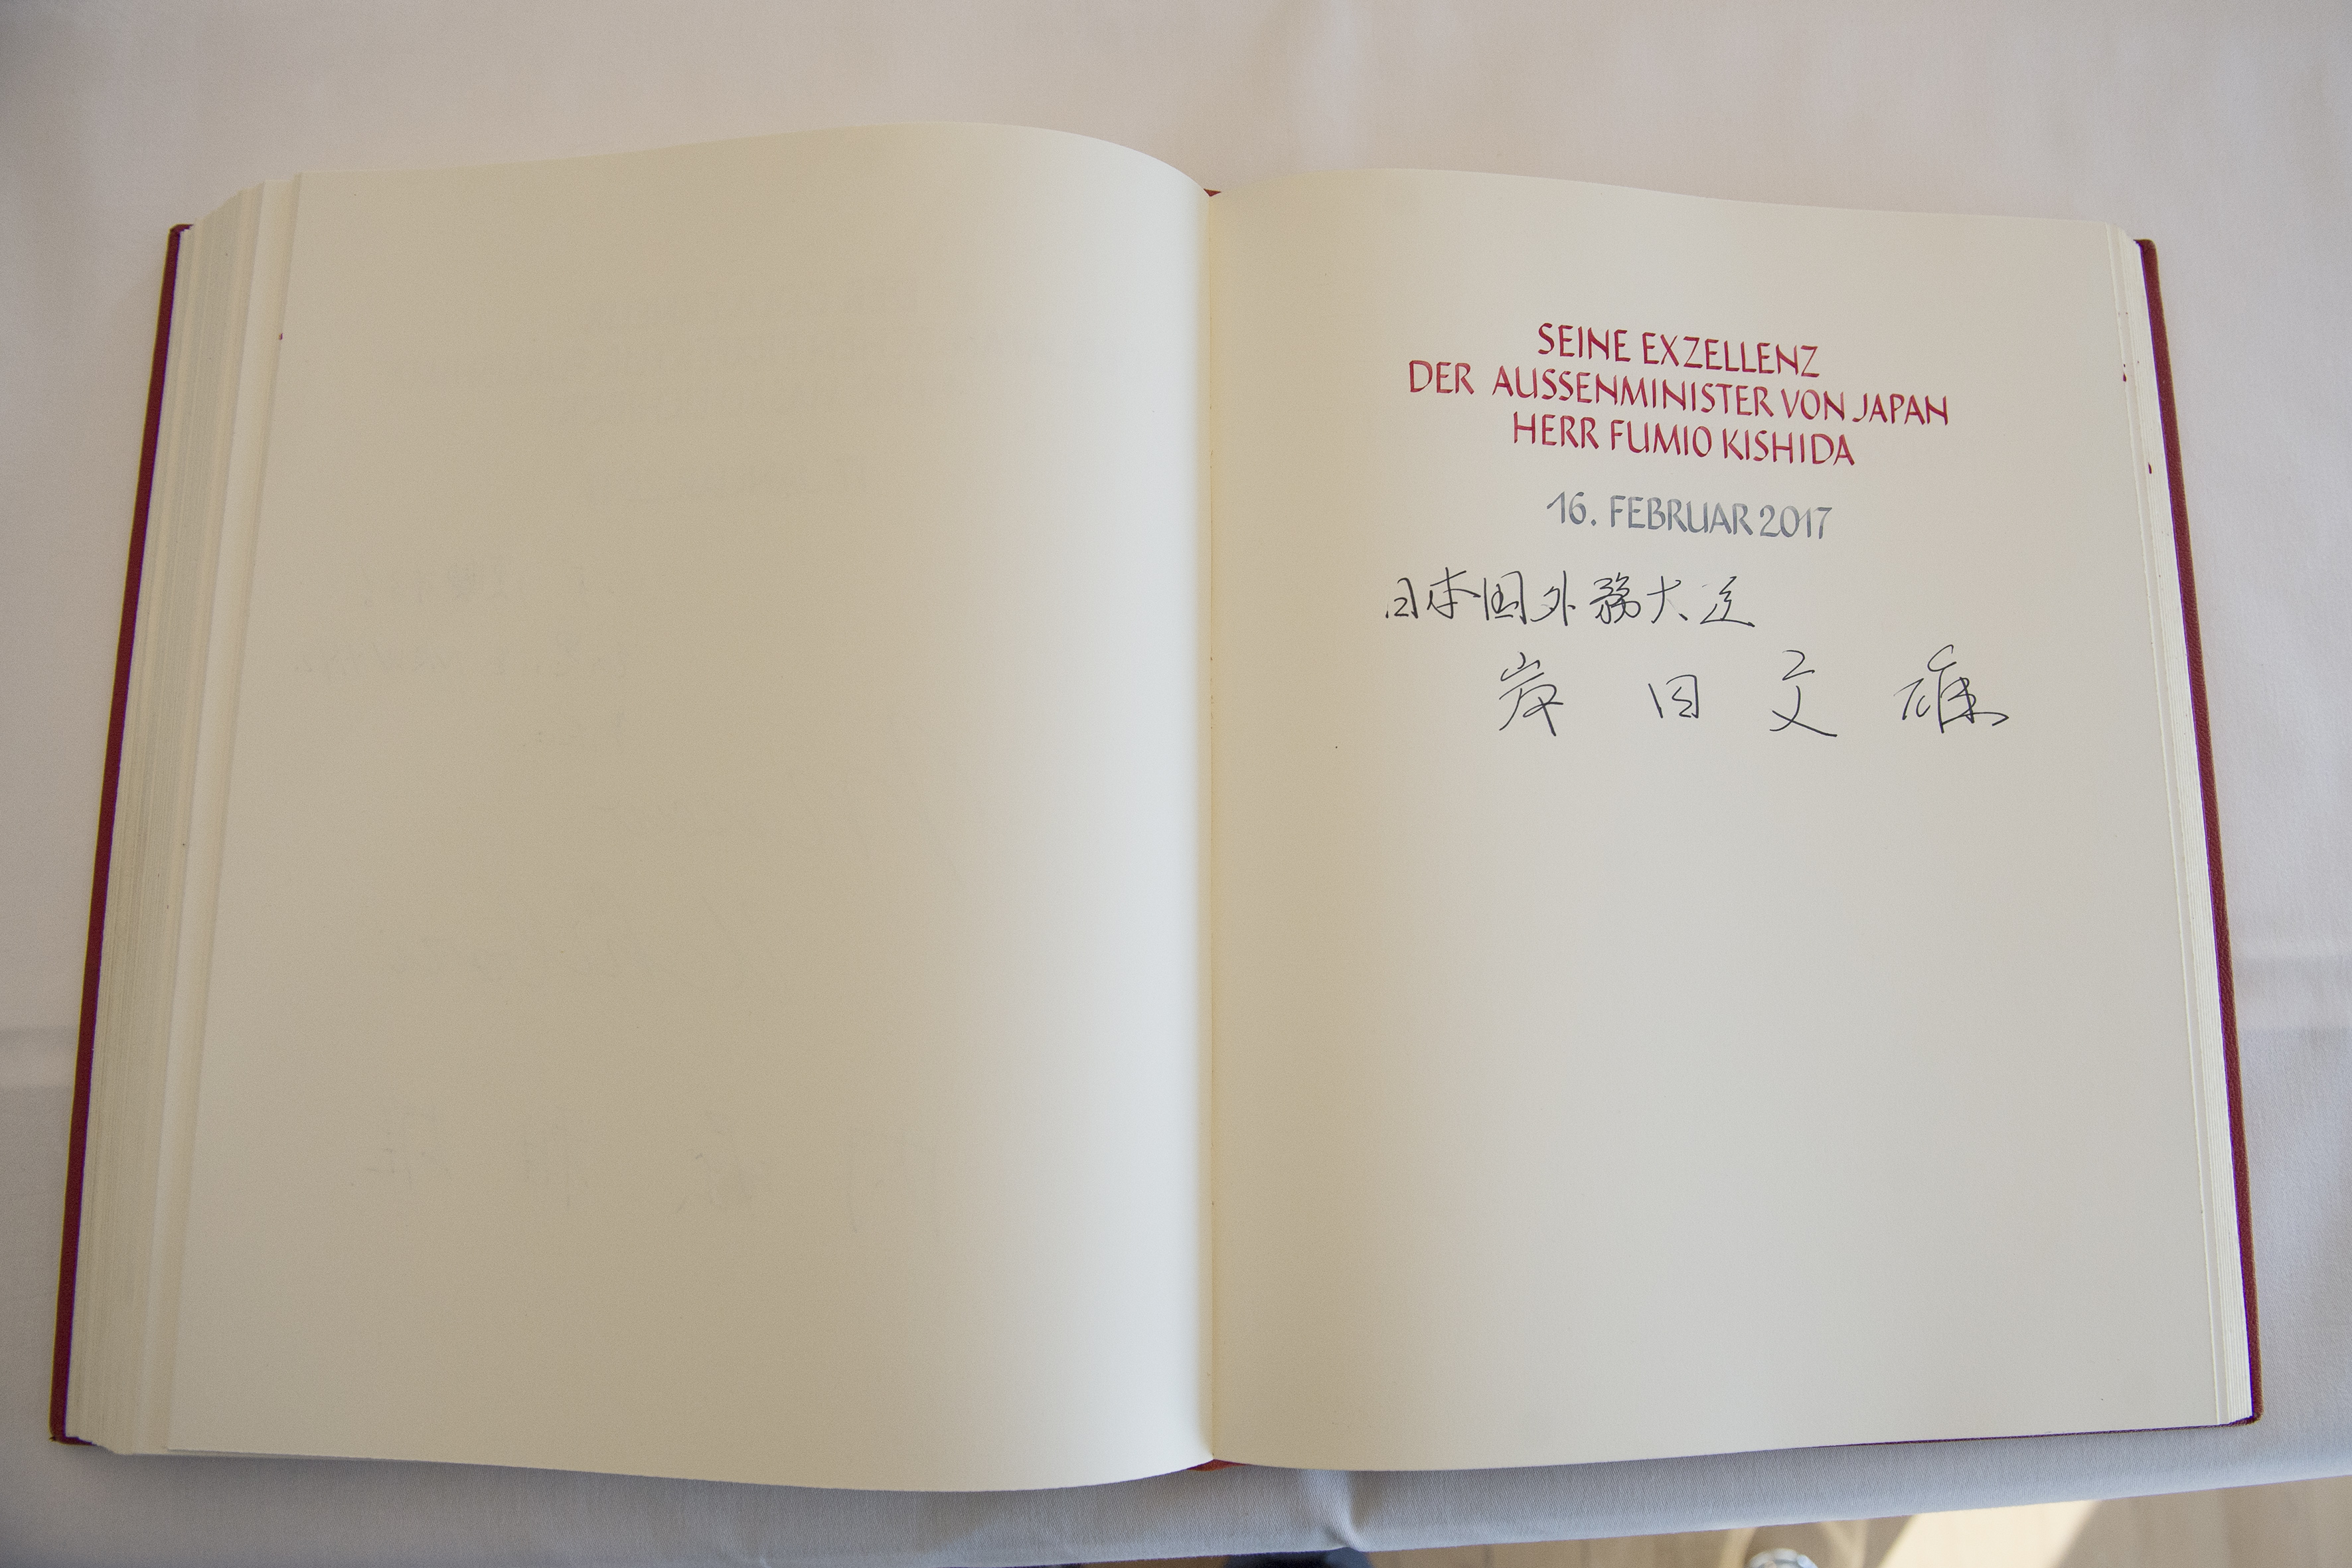 SEINE EXZELLENZ
DER AUSSENMINISTER VON JAPAN
HERR FUMIO KISHIDA
16. FEBRUAR 2017
日本国外務大臣
岸田文雄